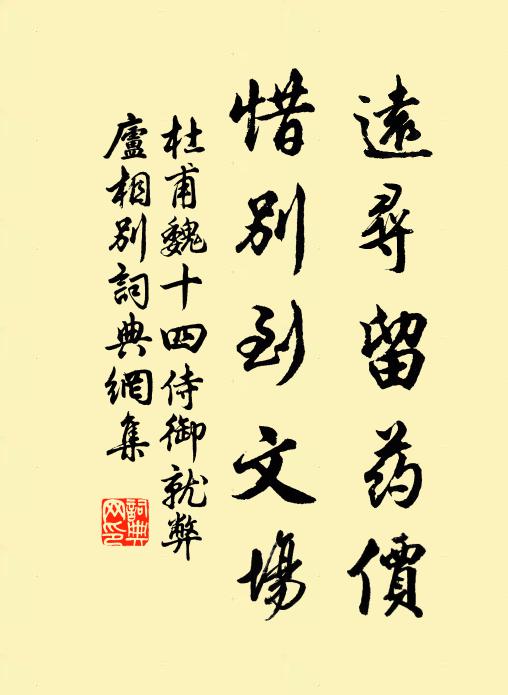 遠尋留药價
惜別到文場
杜甫魏十四侍御就弊
廬相別詞典網集
詞典
网印